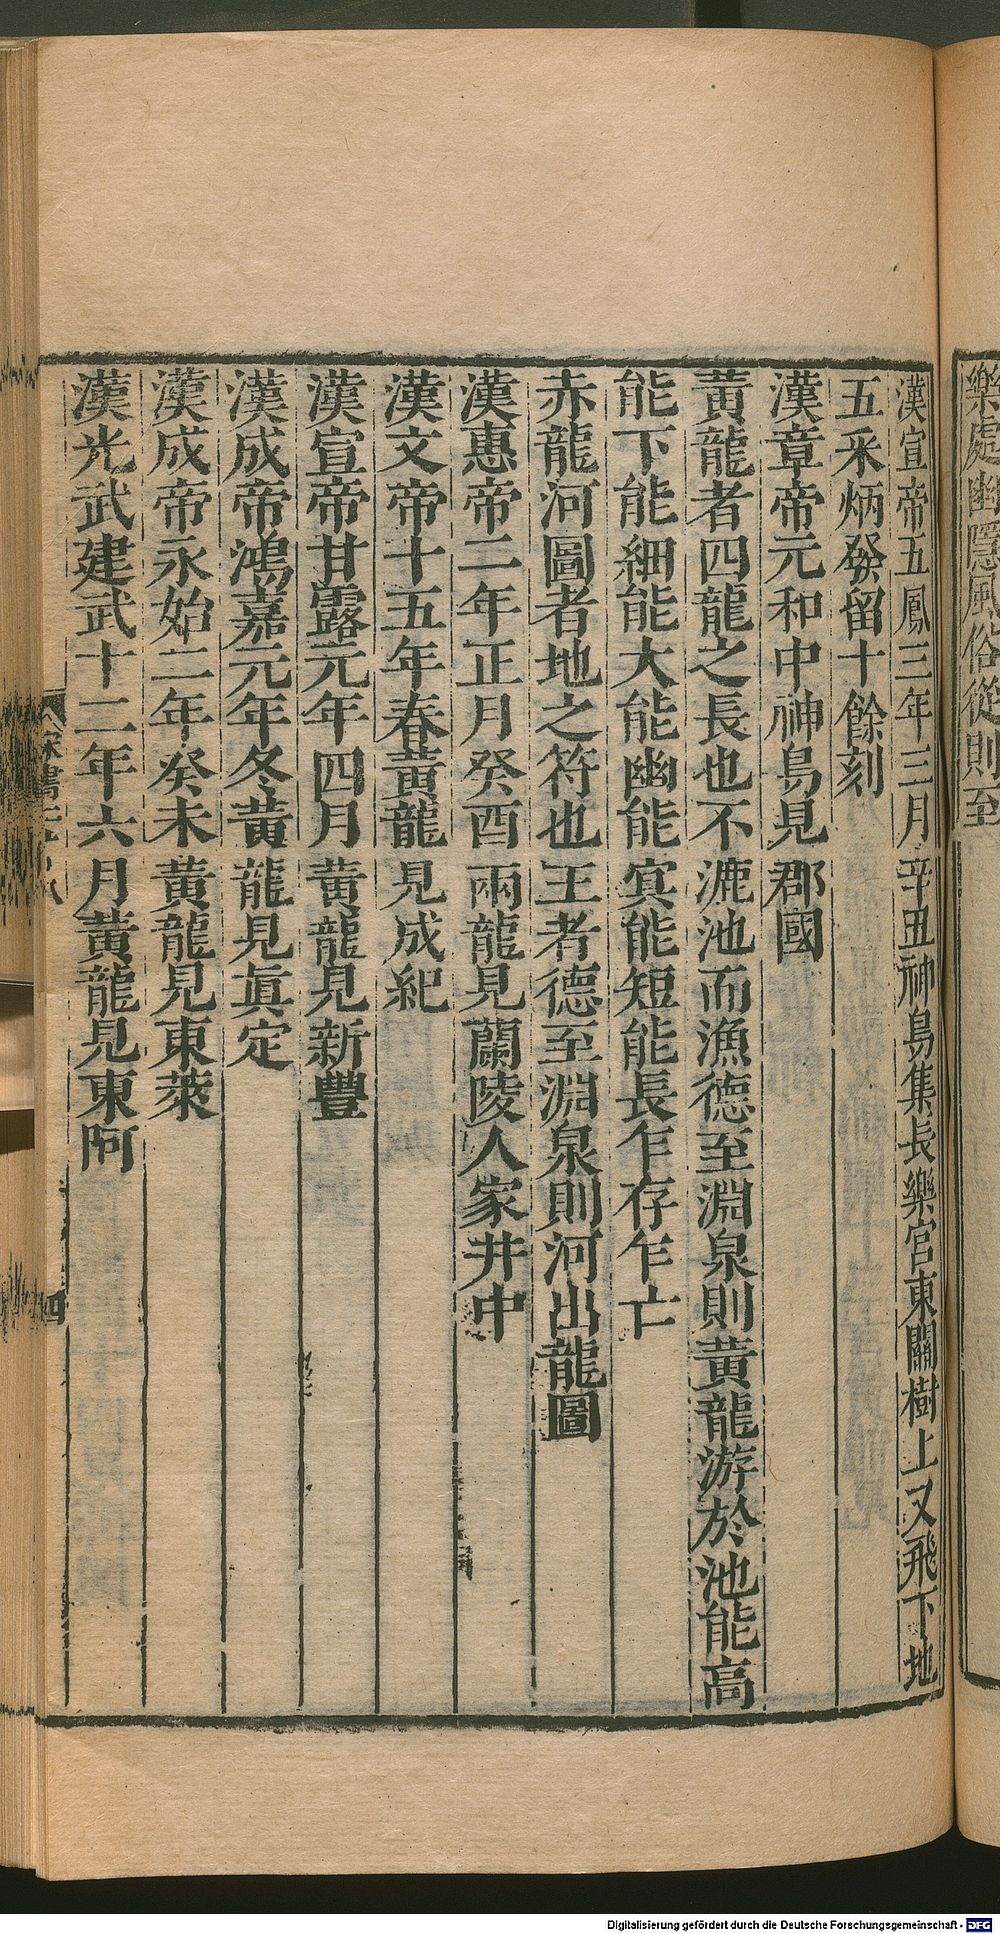 樂處幽隱風俗從則至
漢宣帝五鳳三年三月辛丑神鳥集長樂宮東闕樹上又飛下地
五采炳發留十餘刻
漢章帝元和中神鳥見郡國
黃龍者四龍之長也不漉池而漁德至淵泉則黃龍游於池能高
能下能細能大能幽能冥能短能長乍存乍亡
赤龍河圖者地之符也王者德至淵泉則河出龍圖
漢惠帝二年正月癸酉兩龍見蘭陵人家井中
漢文帝十五年春黃龍見成紀
漢宣帝甘露元年四月黃龍見新豐
漢成帝鴻嘉元年冬黃龍見眞定
漢成帝永始二年癸未黃龍見東萊
漢光武建武十二年六月黃龍見東阿
Digitalisierung gefördert durch die Deutsche Forschungsgemeinschaft - DFG